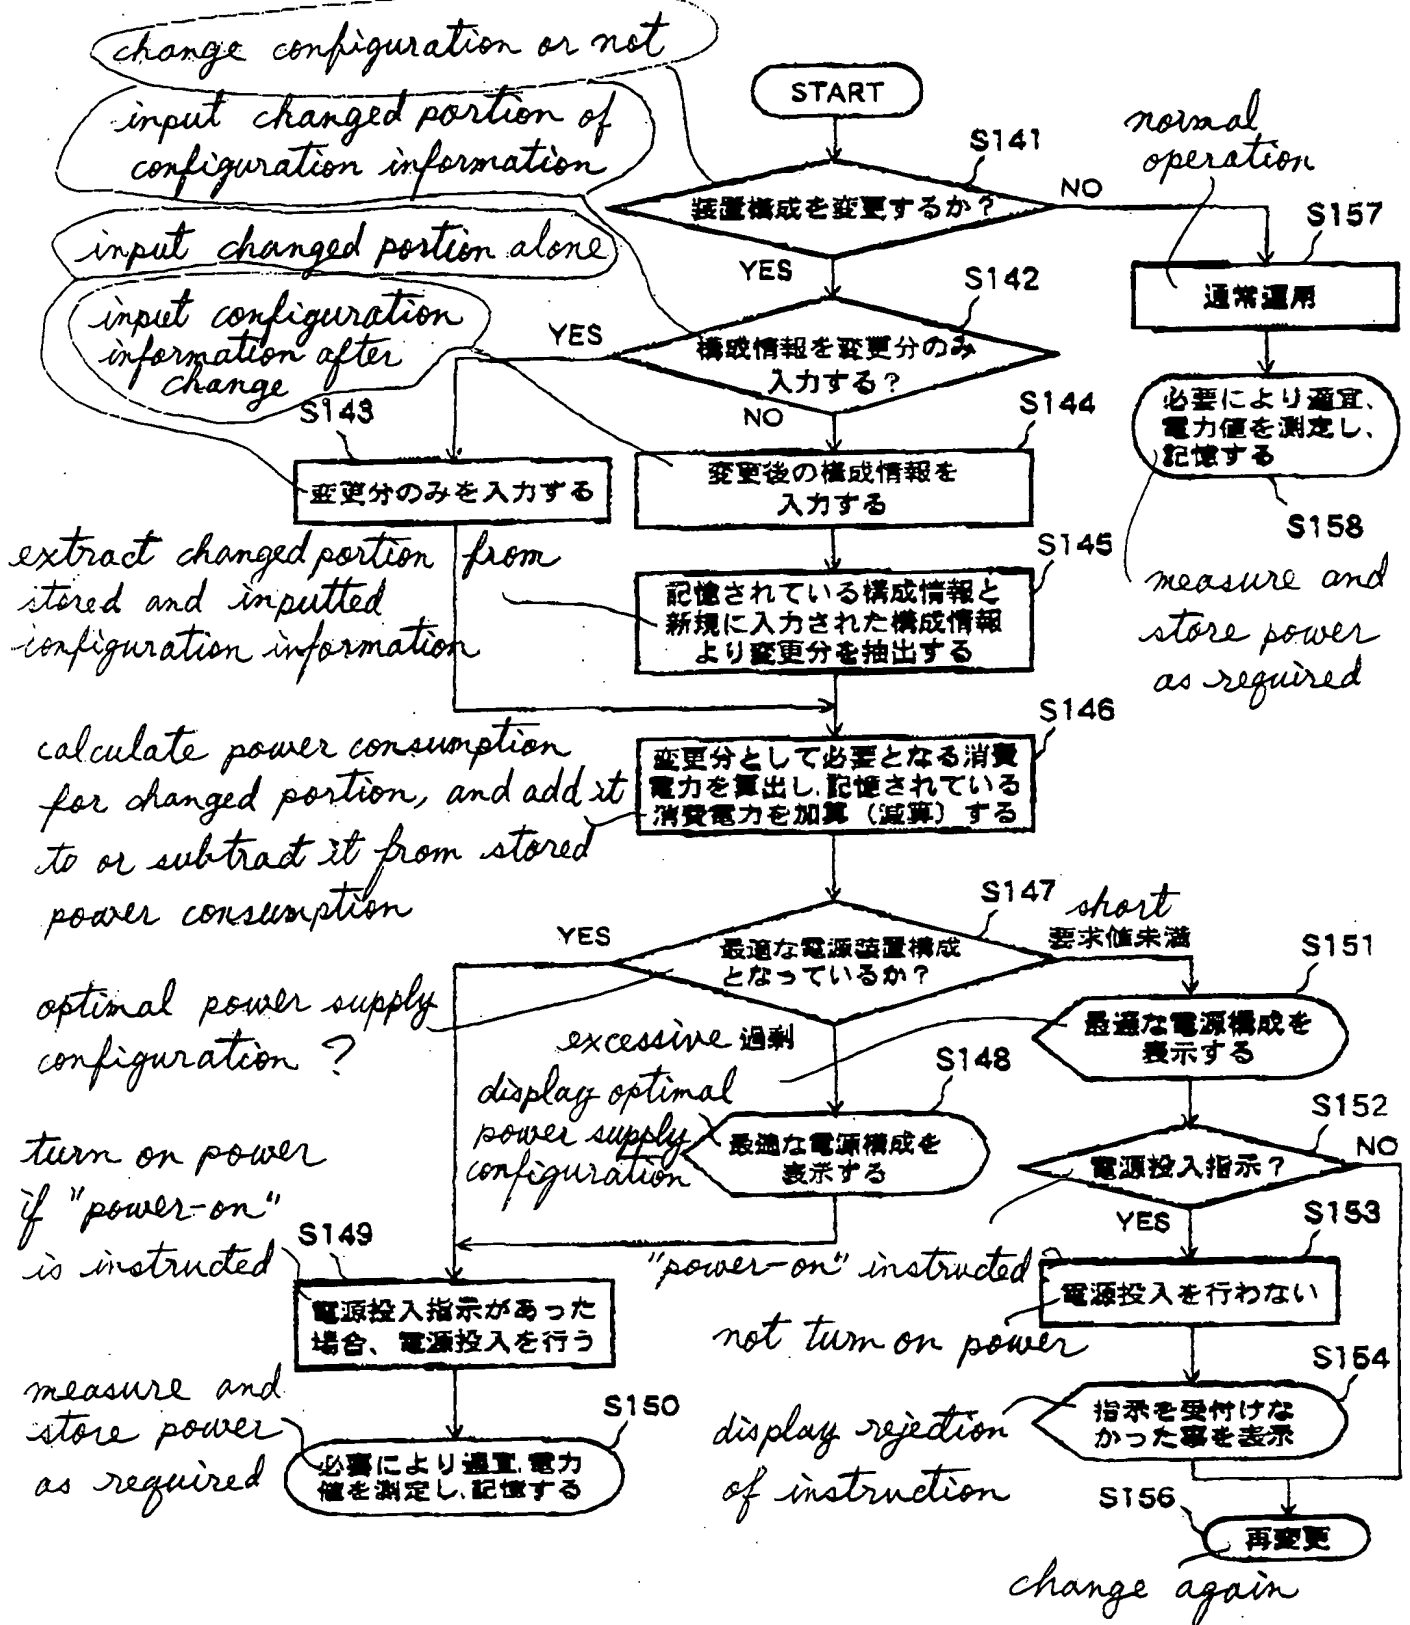 change configuration or not
input changed portion of
configuration information
input changed portion alone
input configuration
information after
change
START
S141
装置構成を変更するか?
NO
YES
normal
operation
S157
通常運用
必要により適宜、
電力値を測定し、
記憶する
S158
measure and
store power
as required
S142
構成情報を変更分のみ
入力する?
YES
NO
S143
変更分のみを入力する
S144
変更後の構成情報を
入力する
extract changed portion from
stored and inputted
configuration information
S145
記憶されている構成情報と
新規に入力された構成情報
より変更分を抽出する
calculate power consumption
for changed portion, and add it
to or subtract it from stored
power consumption
S146
変更分として必要となる消費
電力を算出し、記憶されている
消費電力を加算(減算)する
S147
最適な電源装置構成
となっているか?
YES
short
要求値未満
optimal power supply
configuration ?
excessive 過剰
display optimal
power supply
configuration
S148
最適な電源構成を
表示する
S151
最適な電源構成を
表示する
S152
電源投入指示?
NO
YES
turn on power
if "power-on"
is instructed
S149
電源投入指示があった
場合、電源投入を行う
"power-on" instructed
S153
電源投入を行わない
not turn on power
S154
指示を受付けな
かった事を表示
display rejection
of instruction
measure and
store power
as required
S150
必要により適宜、電力
値を測定し、記憶する
S156
再変更
change again